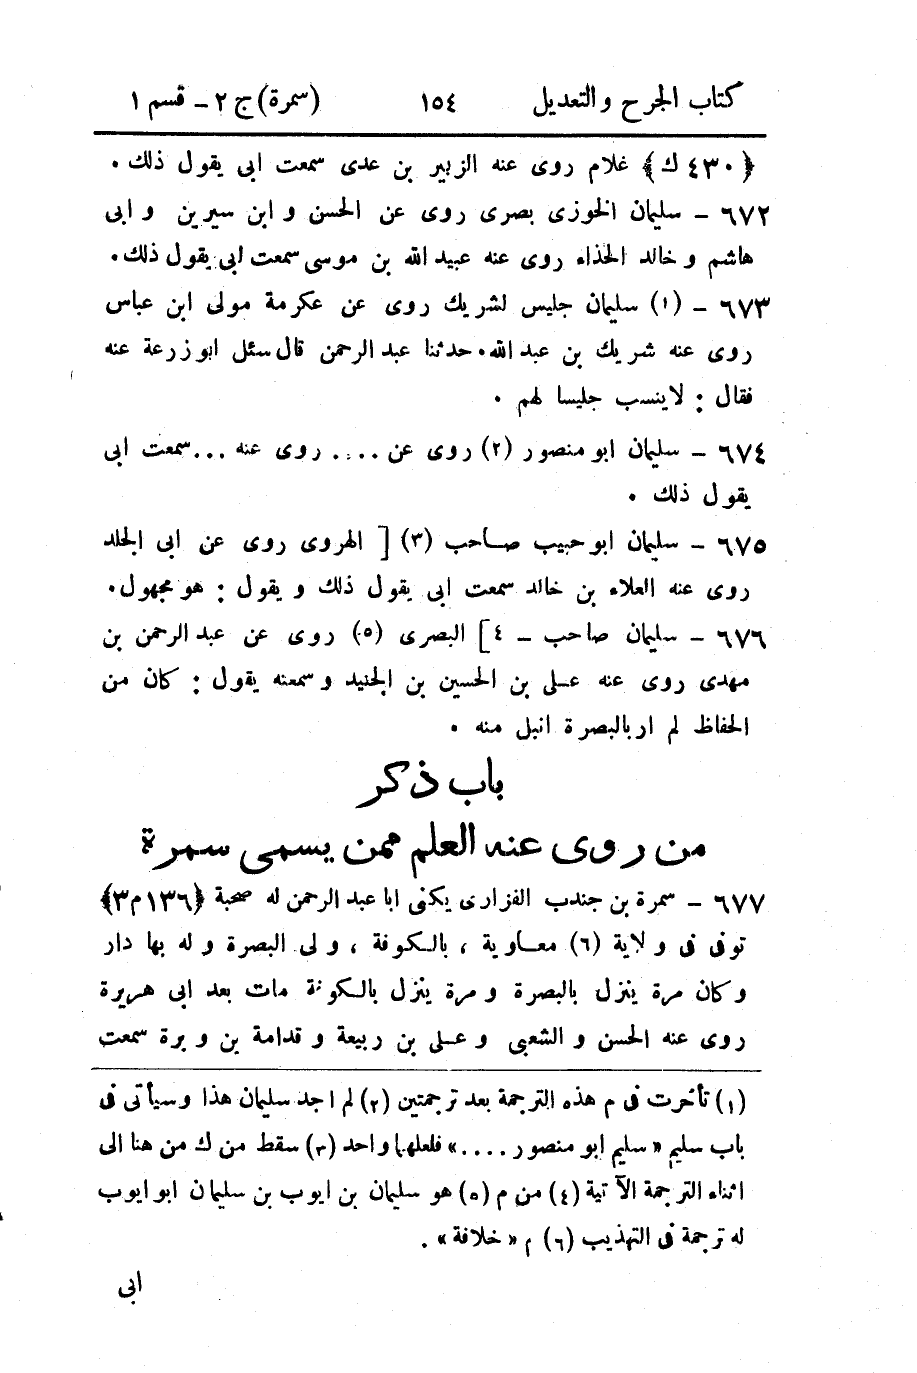 كتاب الجرح والتعديل ١٥٤ (سمرة) ج ٢ - قسم ١
﴿٤٣٠ ك﴾ غلام روى عنه الزبير بن عدى سمعت ابى يقول ذلك .
٦٧٢ - سليمان الخوزى بصرى روى عن الحسن وابن سيرين وابى
هاشم وخالد الحذاء روى عنه عبيد الله بن موسى سمعت ابى يقول ذلك .
٦٧٣ - (١) سليمان جليس لشريك روى عن عكرمة مولى ابن عباس
روى عنه شريك بن عبد الله . حدثنا عبد الرحمن قال سئل ابو زرعة عنه
فقال : لا ينسب جليسا لهم .
٦٧٤ - سليمان ابو منصور (٢) روى عن .... روى عنه ... سمعت ابى
يقول ذلك .
٦٧٥ - سليمان ابو حبيب صاحب (٣) [ الهروى روى عن ابى الجلد
روى عنه العلاء بن خالد سمعت ابى يقول ذلك ويقول : هو مجهول .
٦٧٦ - سليمان صاحب - ٤ ] البصرى (٥) روى عن عبد الرحمن بن
مهدى روى عنه على بن الحسين بن الجنيد وسمعته يقول : كان من
الحفاظ لم ار بالبصرة انبل منه .
باب ذكر
من روى عنه العلم ممن يسمى سمرة
٦٧٧ - سمرة بن جندب الفزارى يكنى ابا عبد الرحمن له صحبة ﴿١٣٦ م ٣﴾
توفى فى ولاية (٦) معاوية ، بالكوفة ، ولى البصرة وله بها دار
وكان مرة ينزل بالبصرة ومرة ينزل بالكوفة مات بعد ابى هريرة
روى عنه الحسن والشعبى وعلى بن ربيعة وقدامة بن وبرة سمعت
(١) تأخرت فى م هذه الترجمة بعد ترجمتين (٢) لم اجد سليمان هذا وسيأتى فى
باب سليم « سليم ابو منصور .... » فلعلها واحد (٣) سقط من ك من هنا الى
اثناء الترجمة الآتية (٤) من م (٥) هو سليمان بن ايوب بن سليمان ابو ايوب
له ترجمة فى التهذيب (٦) م « خلافة » .
ابى